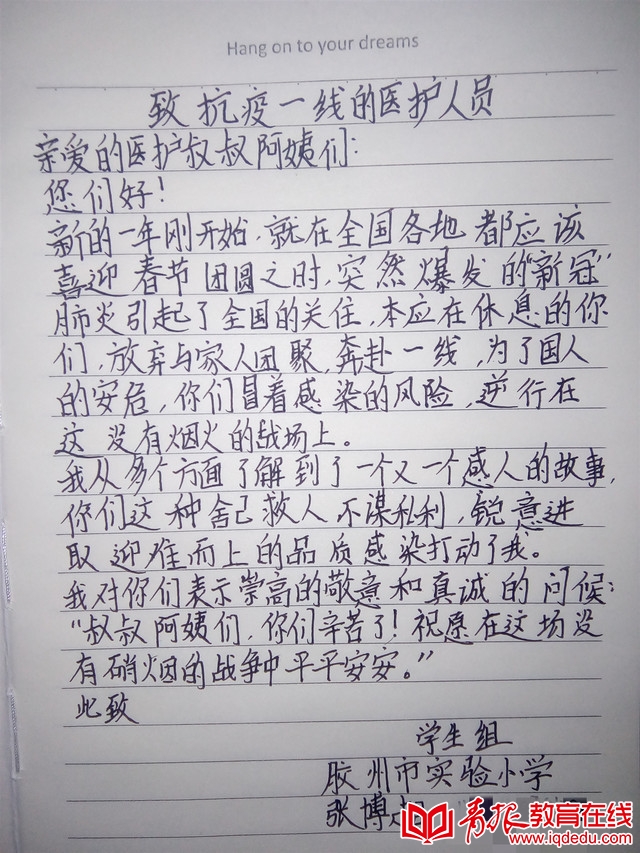 Hang on to your dreams
致抗疫一线的医护人员
亲爱的医护叔叔阿姨们:
您们好!
新的一年刚开始,就在全国各地都应该
喜迎春节团圆之时,突然爆发的"新冠"
肺炎引起了全国的关住,本应在休息的你
们,放弃与家人团聚,奔赴一线,为了国人
的安危,你们冒着感染的风险,逆行在
这没有烟火的战场上。
我从多个方面了解到了一个又一个感人的故事,
你们这种舍己救人不谋私利,锐意进
取迎难而上的品质感染打动了我。
我对你们表示崇高的敬意和真诚的问候:
"叔叔阿姨们,你们辛苦了!祝愿在这场没
有硝烟的战争中平平安安。"
此致
学生组
胶州市实验小学
张博
青报教育在线
www.iqdedu.com